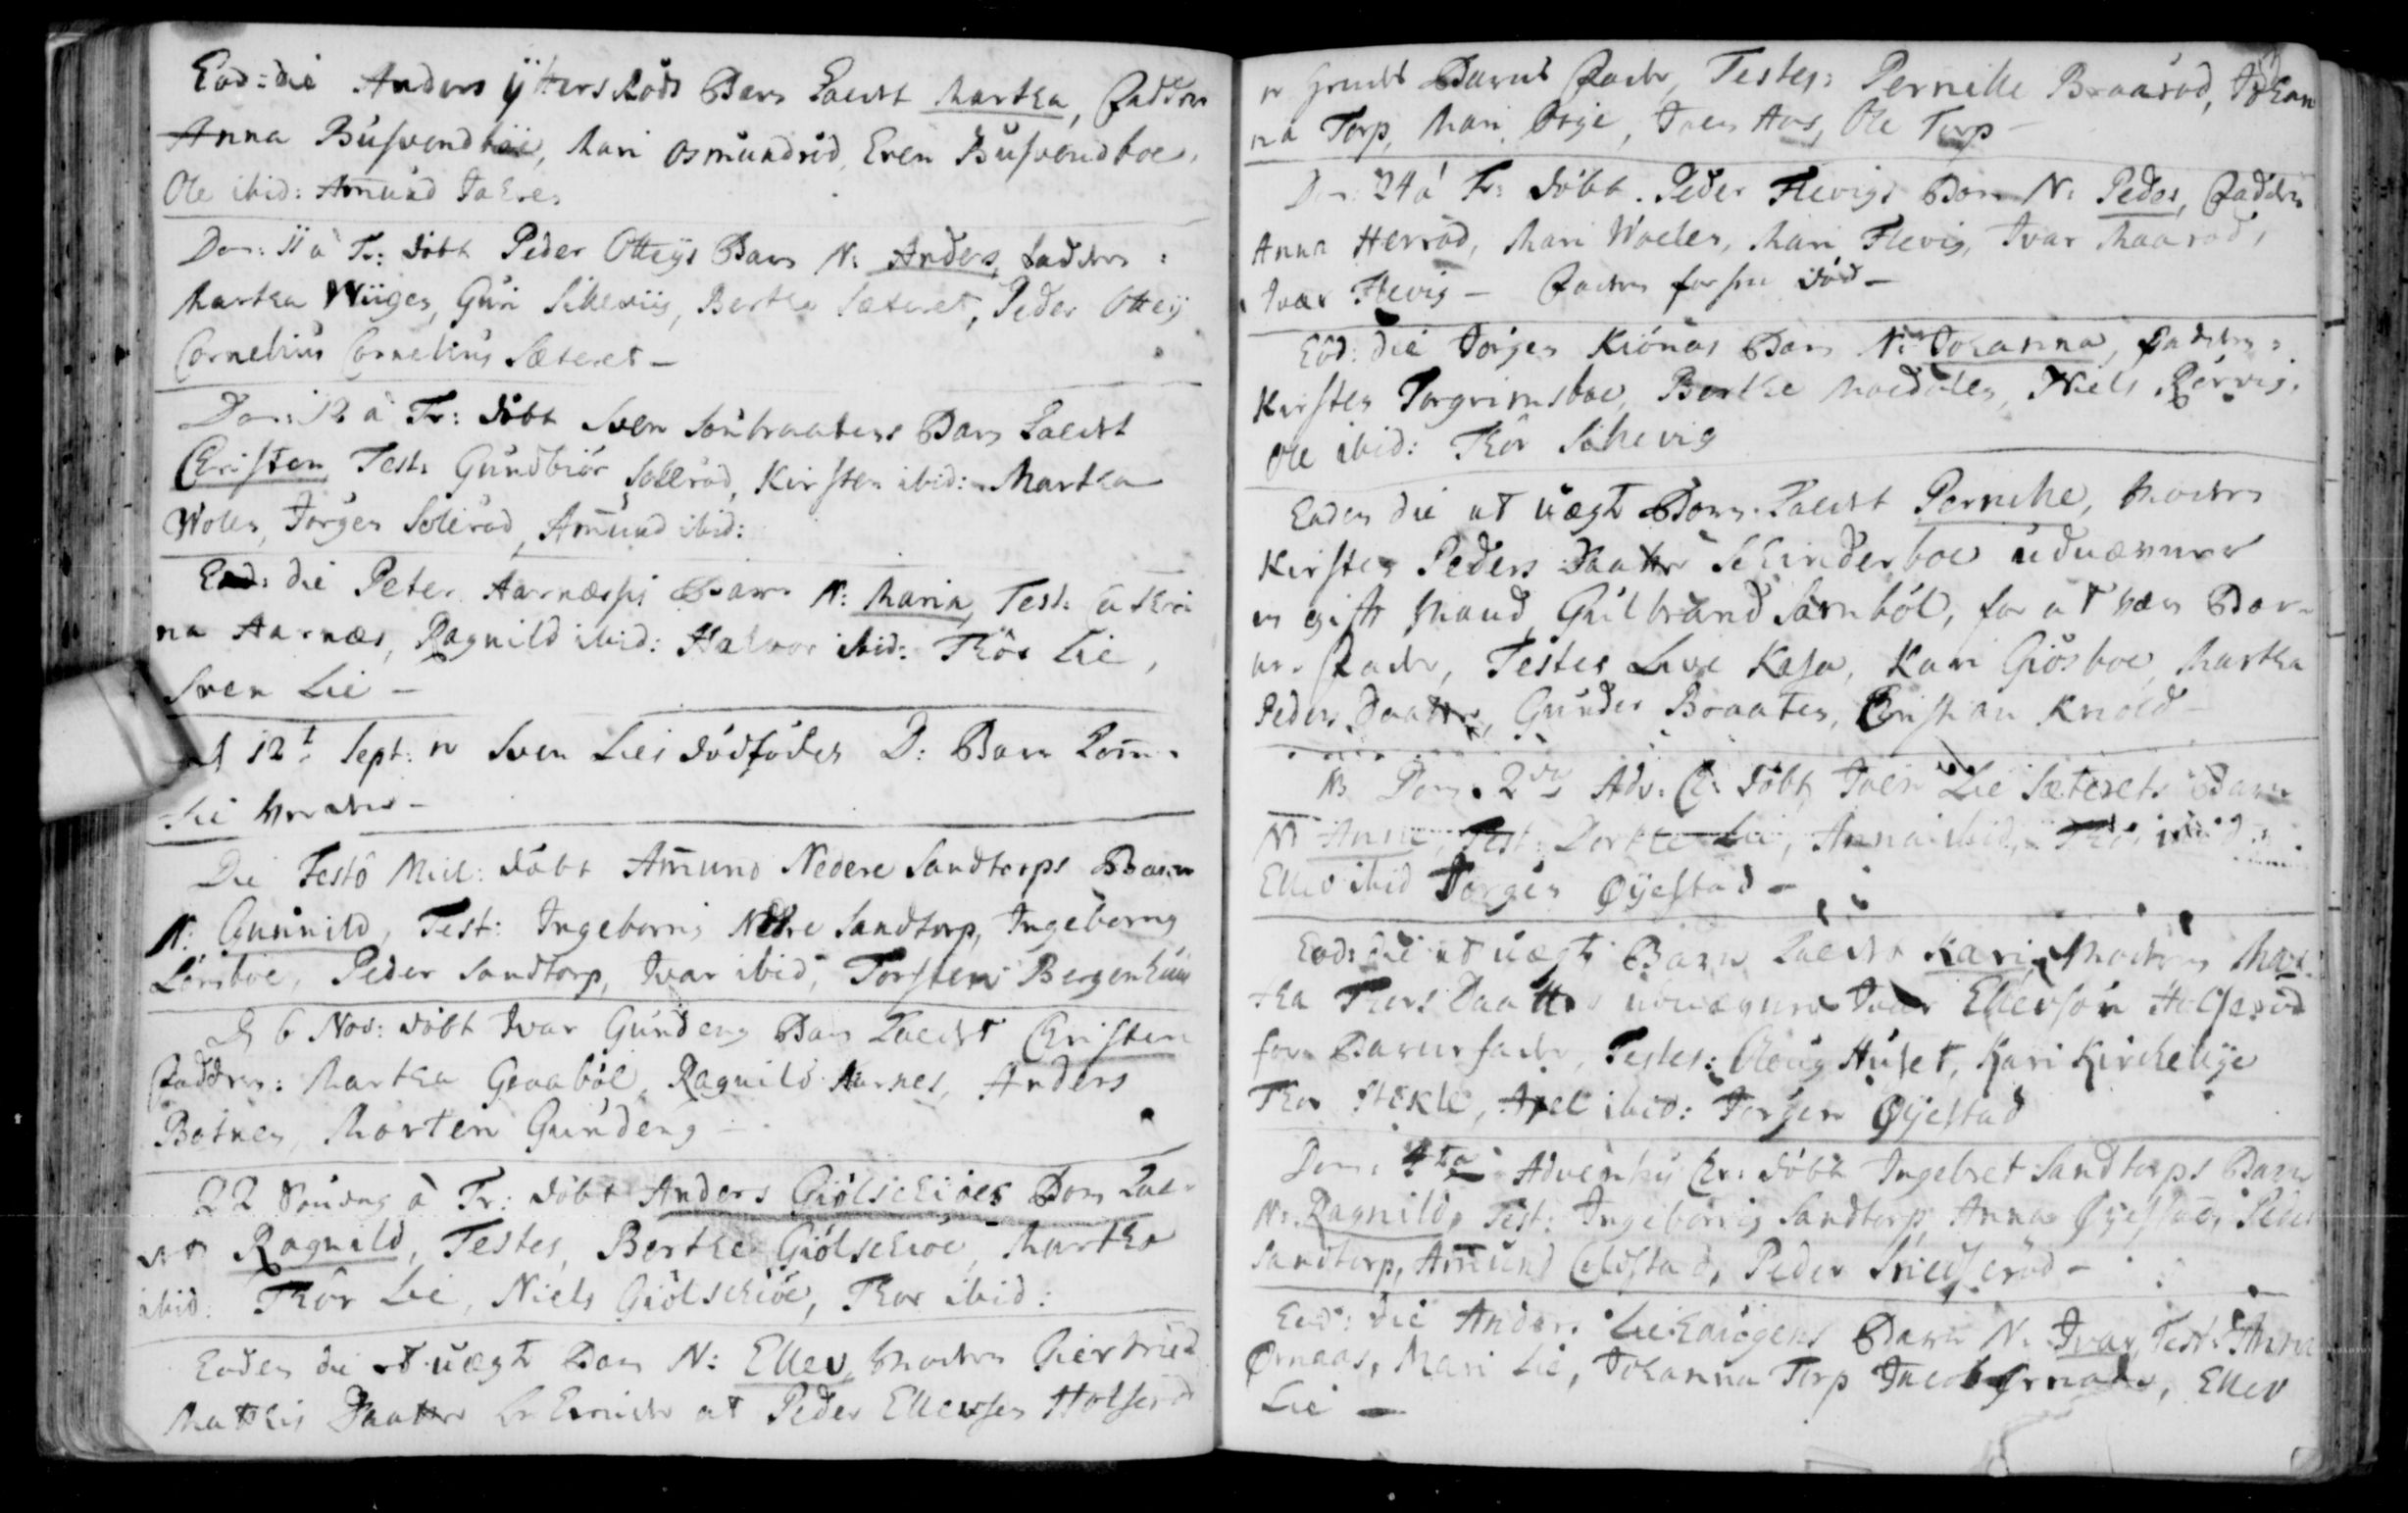 Eod: die Anders ÿttersRöds Barn kaldt Martha, Faddere
Anna Busvendboe, Mari Osmundröd, Even Busvendboe,
Ole ibid: Am̄und
Dom: 11 à Tr: döbt Peder Otteÿs Barn N: Anders, Faddere:
Martha Wiigen, Guri, Berthe Sæteret, Peder Otteÿ
Cornelius Cornelius Sæteret –
Dom: 12 à Tr: döbt Sven Barn kaldt
Christen, Test: Gundbiör Solleröd, Kirsten ibid: Martha
Wolen, Jörgen Solleröd, Am̄und ibid:
Eod: die Peter Barn N: Maria, Test: Cathri
na Aarnæs, Ragnild ibid: Halvor ibid: Thór Lie,
Sven Lie –
12t Sept: er Sven Lies dödfödes D: Barn
Die Festô Mich: döbt Am̄und Nedere Sandtorps Barn
N: Gunnild, Test: Ingeborrig Nedre Sandtorp, Ingeborrig
Peder Sandtorp, Ivar ibid, Torsten
D 6 Nov: döbt Ivar Gundeng Barn kaldt Christen
Faddere: Martha Graaböl, Ragnild Aarnes, Anders
Botnen, Morten Gundeng –
22 Söndag à Tr: döbt Anders Giölschiöes Barn kal-
dt Ragnild, Testes, Berthe Giölschiöe, Martha
ibid: Thór Lie, Niels Giölschiöe, Thor ibid:
Eodem die et uægte Barn N: Ellev, Moderen Giertrud
Mathis Daatter at Peder Ellevsen Holseröd
er Barnets Fader, Testes: Pernille Braaröd, Johan
na Torp, Mari Ole Torp –
Dom: 24 à Tr: döbt Peder Flevigs Barn N: Peder, Faddere
Anna Herröd, Mari Woelen, Mari Flevig, Ivar Maaröd,
Ivar Flevig – Faderen
Eod: die Jörgen Kiönas Barn N: Johanna, Faddere:
Kirsten Torgrimsboe, Berthe Moedalen, Niels Rörvig,
Ole ibid: Thór
Eodem die et uægte Barn kaldt Pernille, Moderen
Kirsten Peders Daatter Schinderboe
en gift Mand, Gulbrand for at være Bar-
nets Fader, Testes Live Kasa, Kari Giösboe, Martha
Peders Daatter, Gunder Braaten, Christian Knold –
NB Dom: 2da Adv: C: döbt Iver Lie Sæterets Barn
N: Anne, Test: Dorthe Lie, Anna ibid,
Ellev ibid Jörgen Øÿestad –
Eod: die et uægte Barn kaldt Kari, Moderen Mar-
tha Thors Daatter Ivar Ellevsön
for Barnefader, Testes: Huset, Kari Kirchebÿe
Thor Støkle, Axel ibid: Jörgen Øÿestad
Dom: 4ta Adventus Chr: döbt Ingebret Sandtorps Barn
N: Ragnild, Test: Ingeborrig Sandtorp, Anna Øÿestad, Peder
Sandtorp, Am̄und Peder
Eod: die Anders Liehaugens Barn N: Ivar, Test: Anna
Ørnaas, Mari Lie, Johanna Torp Jacob Ørnaas, Ellev
Lie –